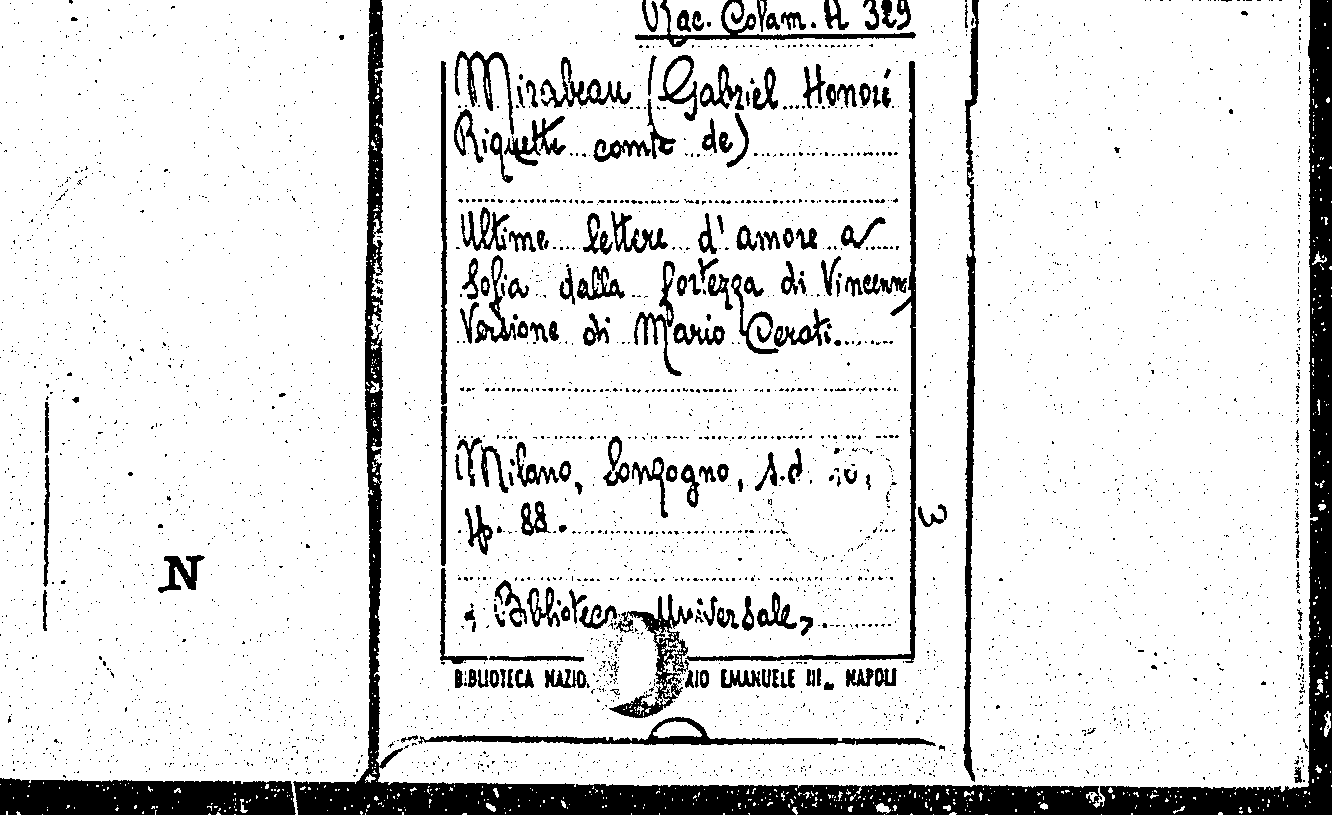 Rac. Colam. A 329
Mirabeau (Gabriel Honoré
Riquetti comte de)
Ultime lettere d'amore a
Sofia dalla fortezza di Vincennes
Versione di Mario Cerati.
Milano, Sonzogno, s.d. 16,
pp. 88.
« Biblioteca Universale».
BIBLIOTECA EMANUELE III_ NAPOLI
3
N